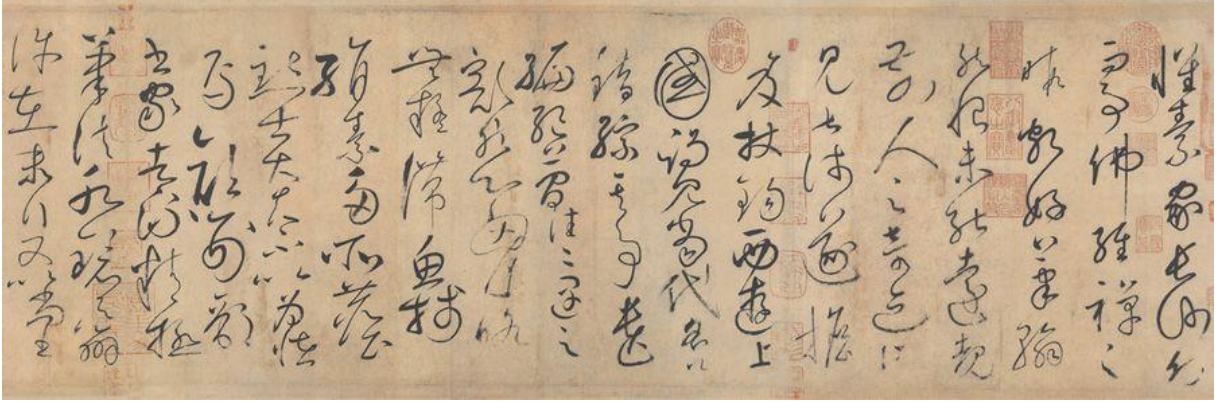 懷素家長沙幼
而事佛經禪之
暇頗好筆翰
然恨未能遠覩
前人之奇迹所
見甚淺遂擔
笈杖錫西遊上
國謁見當代名公
錯綜其事遺
編絕簡往往遇之
豁然心胸略
無疑滯魚牋
絹素多所塵
點士大夫不以為怪
焉顏刑部
書家者流精極
筆法水鏡之辨
許在末行又以尚